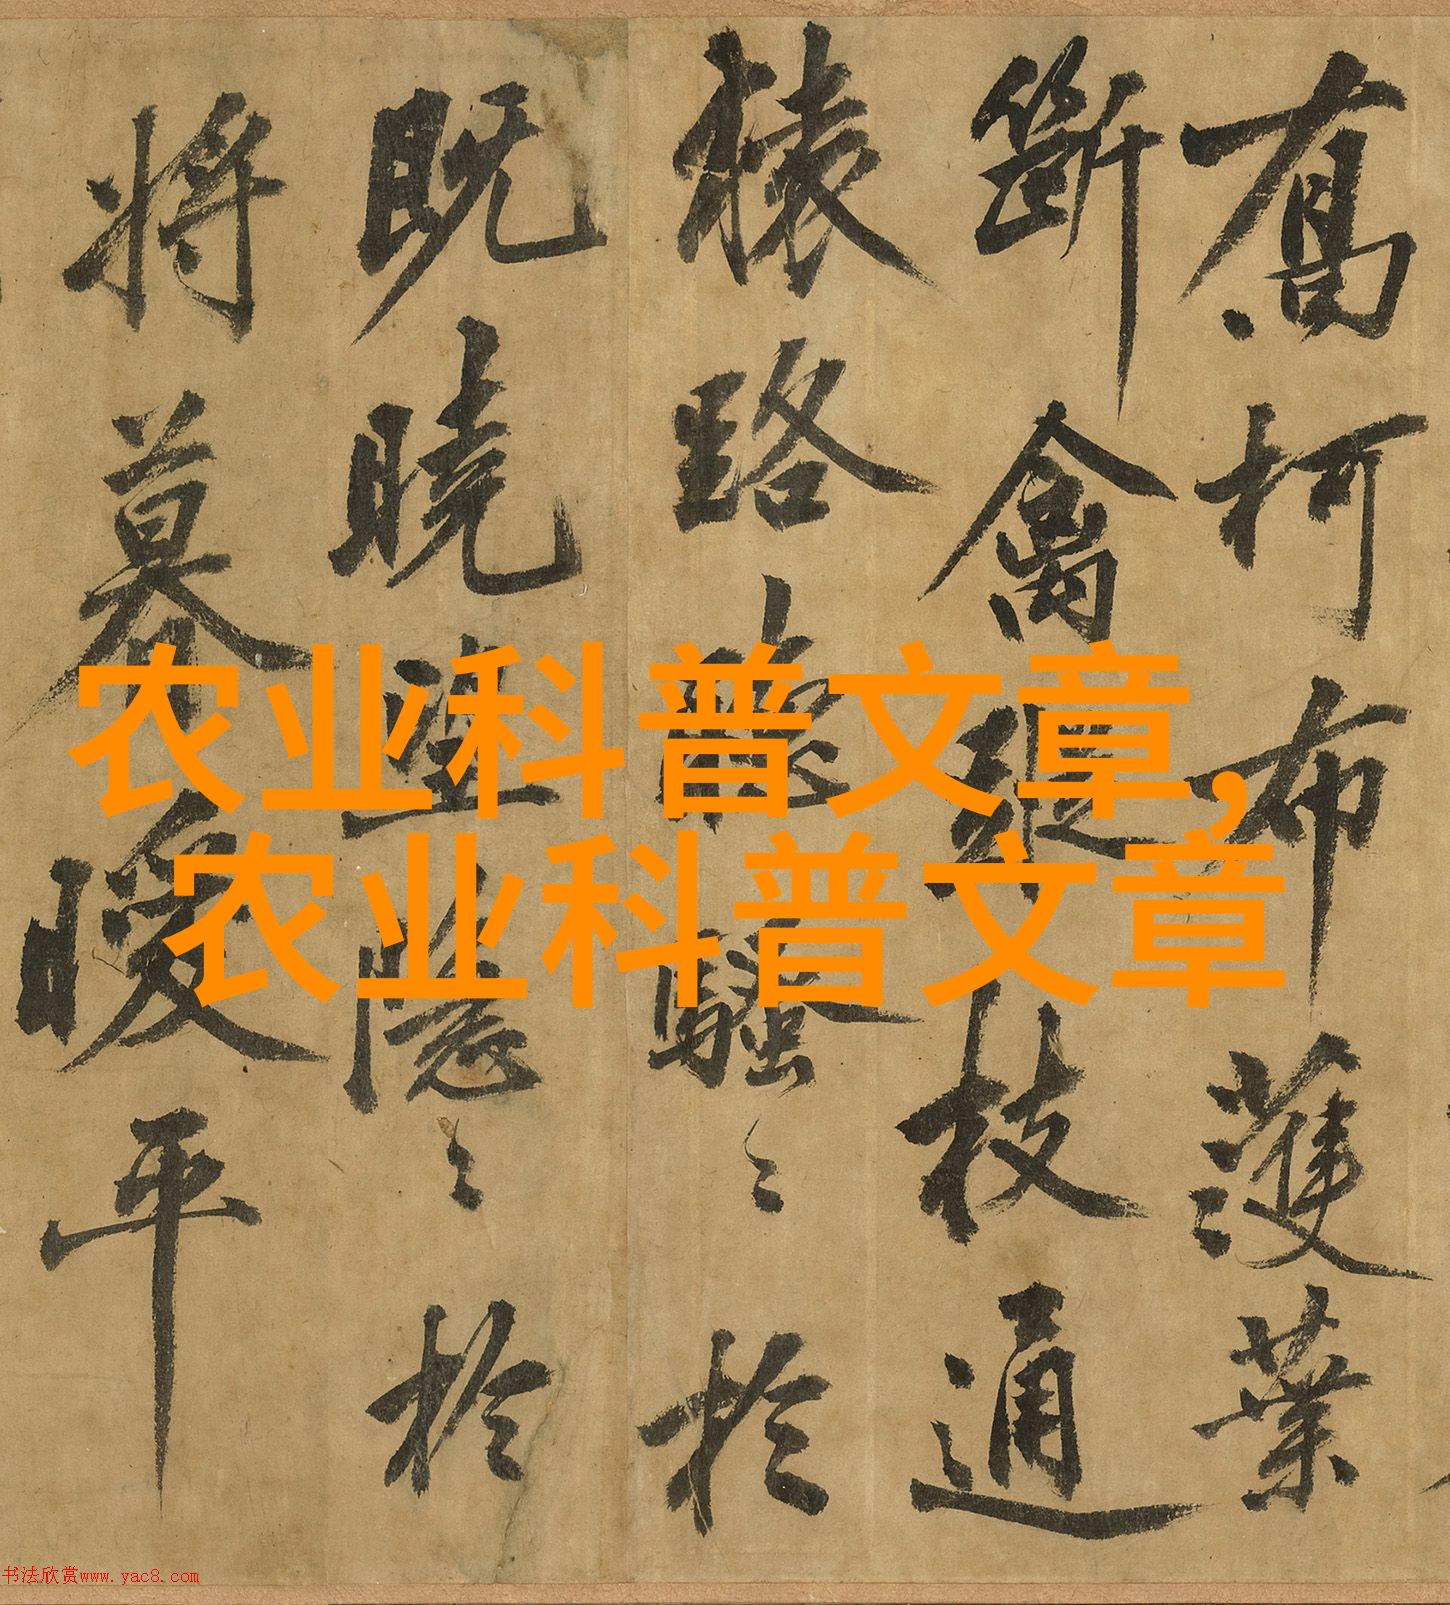 喬柯布濩葉
斷禽枝通
猿路聽騷〻於
既曉望隱〻於
將暮暖平
农业科普文章,
农业科普文章
书法欣赏www.yac8.com